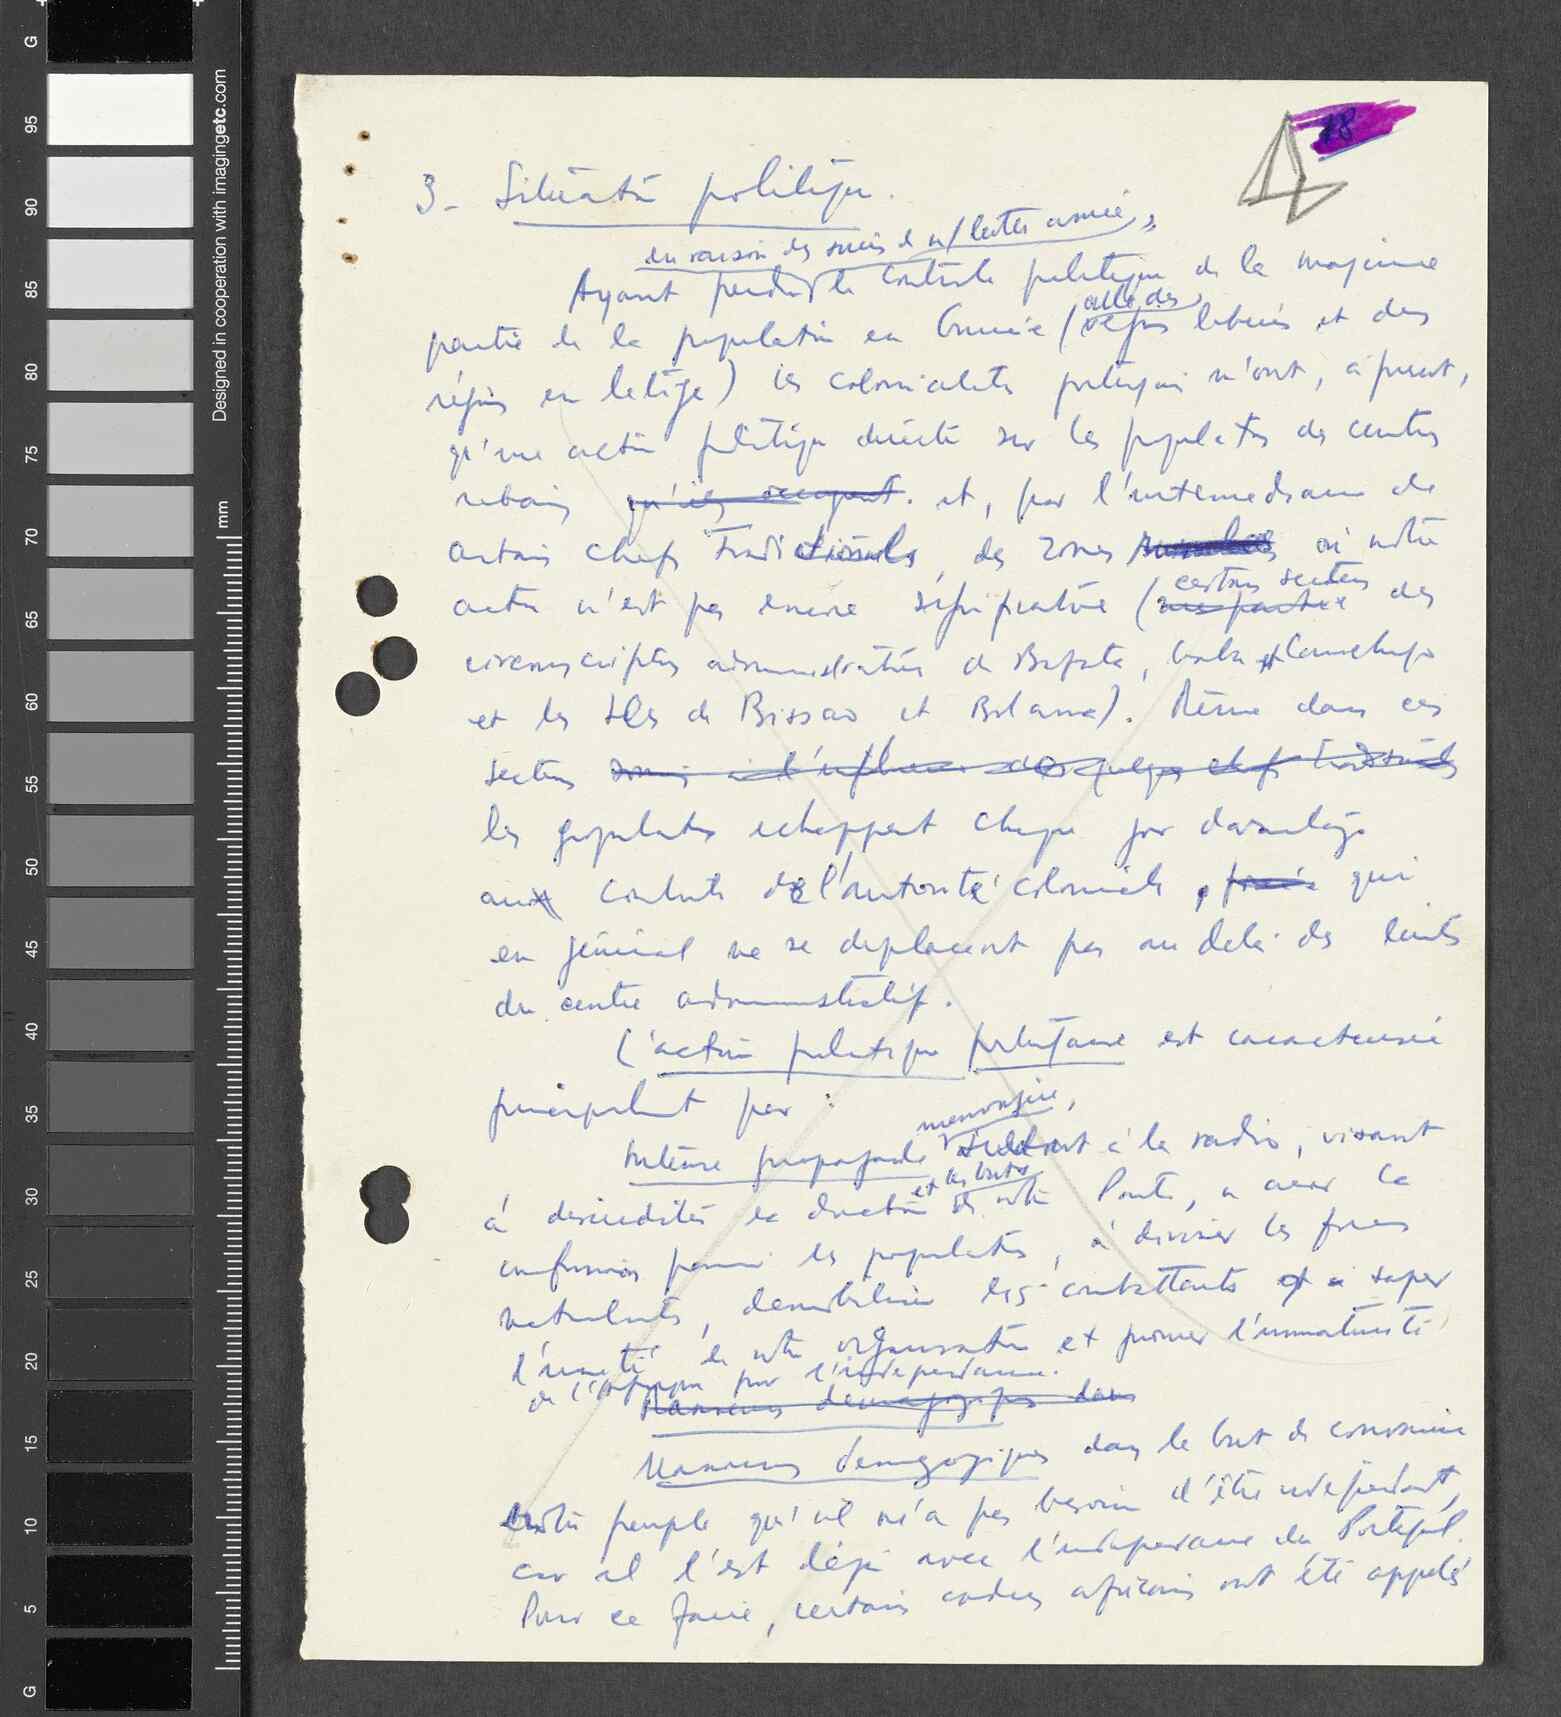 18
4
3 - Situation politique.
en raison des succès de n/ lutte armée,
Ayant perdu le contrôle politique de la majeure
partie de la population en Guinée (celle des régions libérées et des
régions en litige) les colonialistes portugais n'ont, à présent,
qu'une action politique directe sur les populations des centres
urbains qu'ils occupent. et, par l'intermédiaire de
certains chefs traditionnels, des zones où notre
action n'est pas encore significative (certains secteurs une partie des
circonscriptions administratives de Bafata, Gabu et Canchungo
et les Iles de Bissao et Bolama). Même dans ces
secteurs soumis à l'influence de quelques chefs traditionnels
les populations échappent chaque jour davantage
aux contrôle de l'autorité coloniale, qui
en général ne se déplacent pas au delà des limites
du centre administratif.
L'action politique portugaise est caractérisée
principalement par :
mensongère,
Intense propagande surtout à la radio, visant
et les buts
à discréditer la direction de notre Parti, a créer la
confusion parmi les populations, à diviser les forces
nationalistes, démobiliser les combattants et à saper
l'unité de notre organisation et prôner l'immaturité
de l'Afrique pour l'indépendance.
Manoeuvres démagogiques dans
Manoeuvres démagogiques dans le but de convaincre
notre peuple qu'il n'a pas besoin d'être indépendant,
car il l'est déjà avec l'indépendance du Portugal.
Pour ce faire, certains cadres africains ont été appelés
Designed in cooperation with imagingetc.com
mm
G
95
90
85
80
75
70
65
60
55
50
45
40
35
30
25
20
15
10
5
G